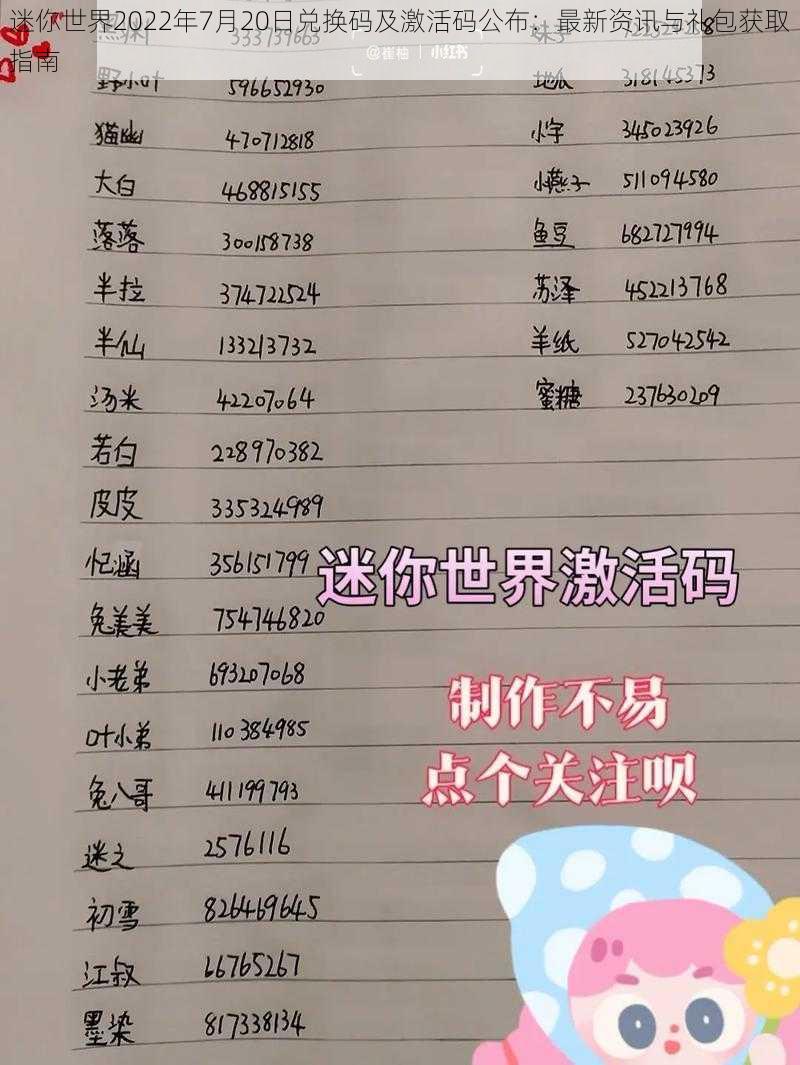 迷你世界2022年7月20日兑换码及激活码公布：最新资讯与礼包获取
指南
@崔柚 | 小红书
野小叶 596652930
猫幽 470712818
大白 468815155
落落 300158738
半拉 374722524
半仙 133213732
汤米 42207064
若白 228970382
皮皮 335324989
忆涵 356151799
兔美美 754746820
小老弟 693207068
叶小弟 110384985
兔八哥 411199793
迷之 2576116
初雪 826469645
江叔 66765267
墨染 817338134
妹子
地瓜 318145373
小字 345023926
小燕子 511094580
鱼豆 682727994
苏泽 452213768
羊纸 527042542
蜜糖 237630209
迷你世界激活码
制作不易
点个关注呗